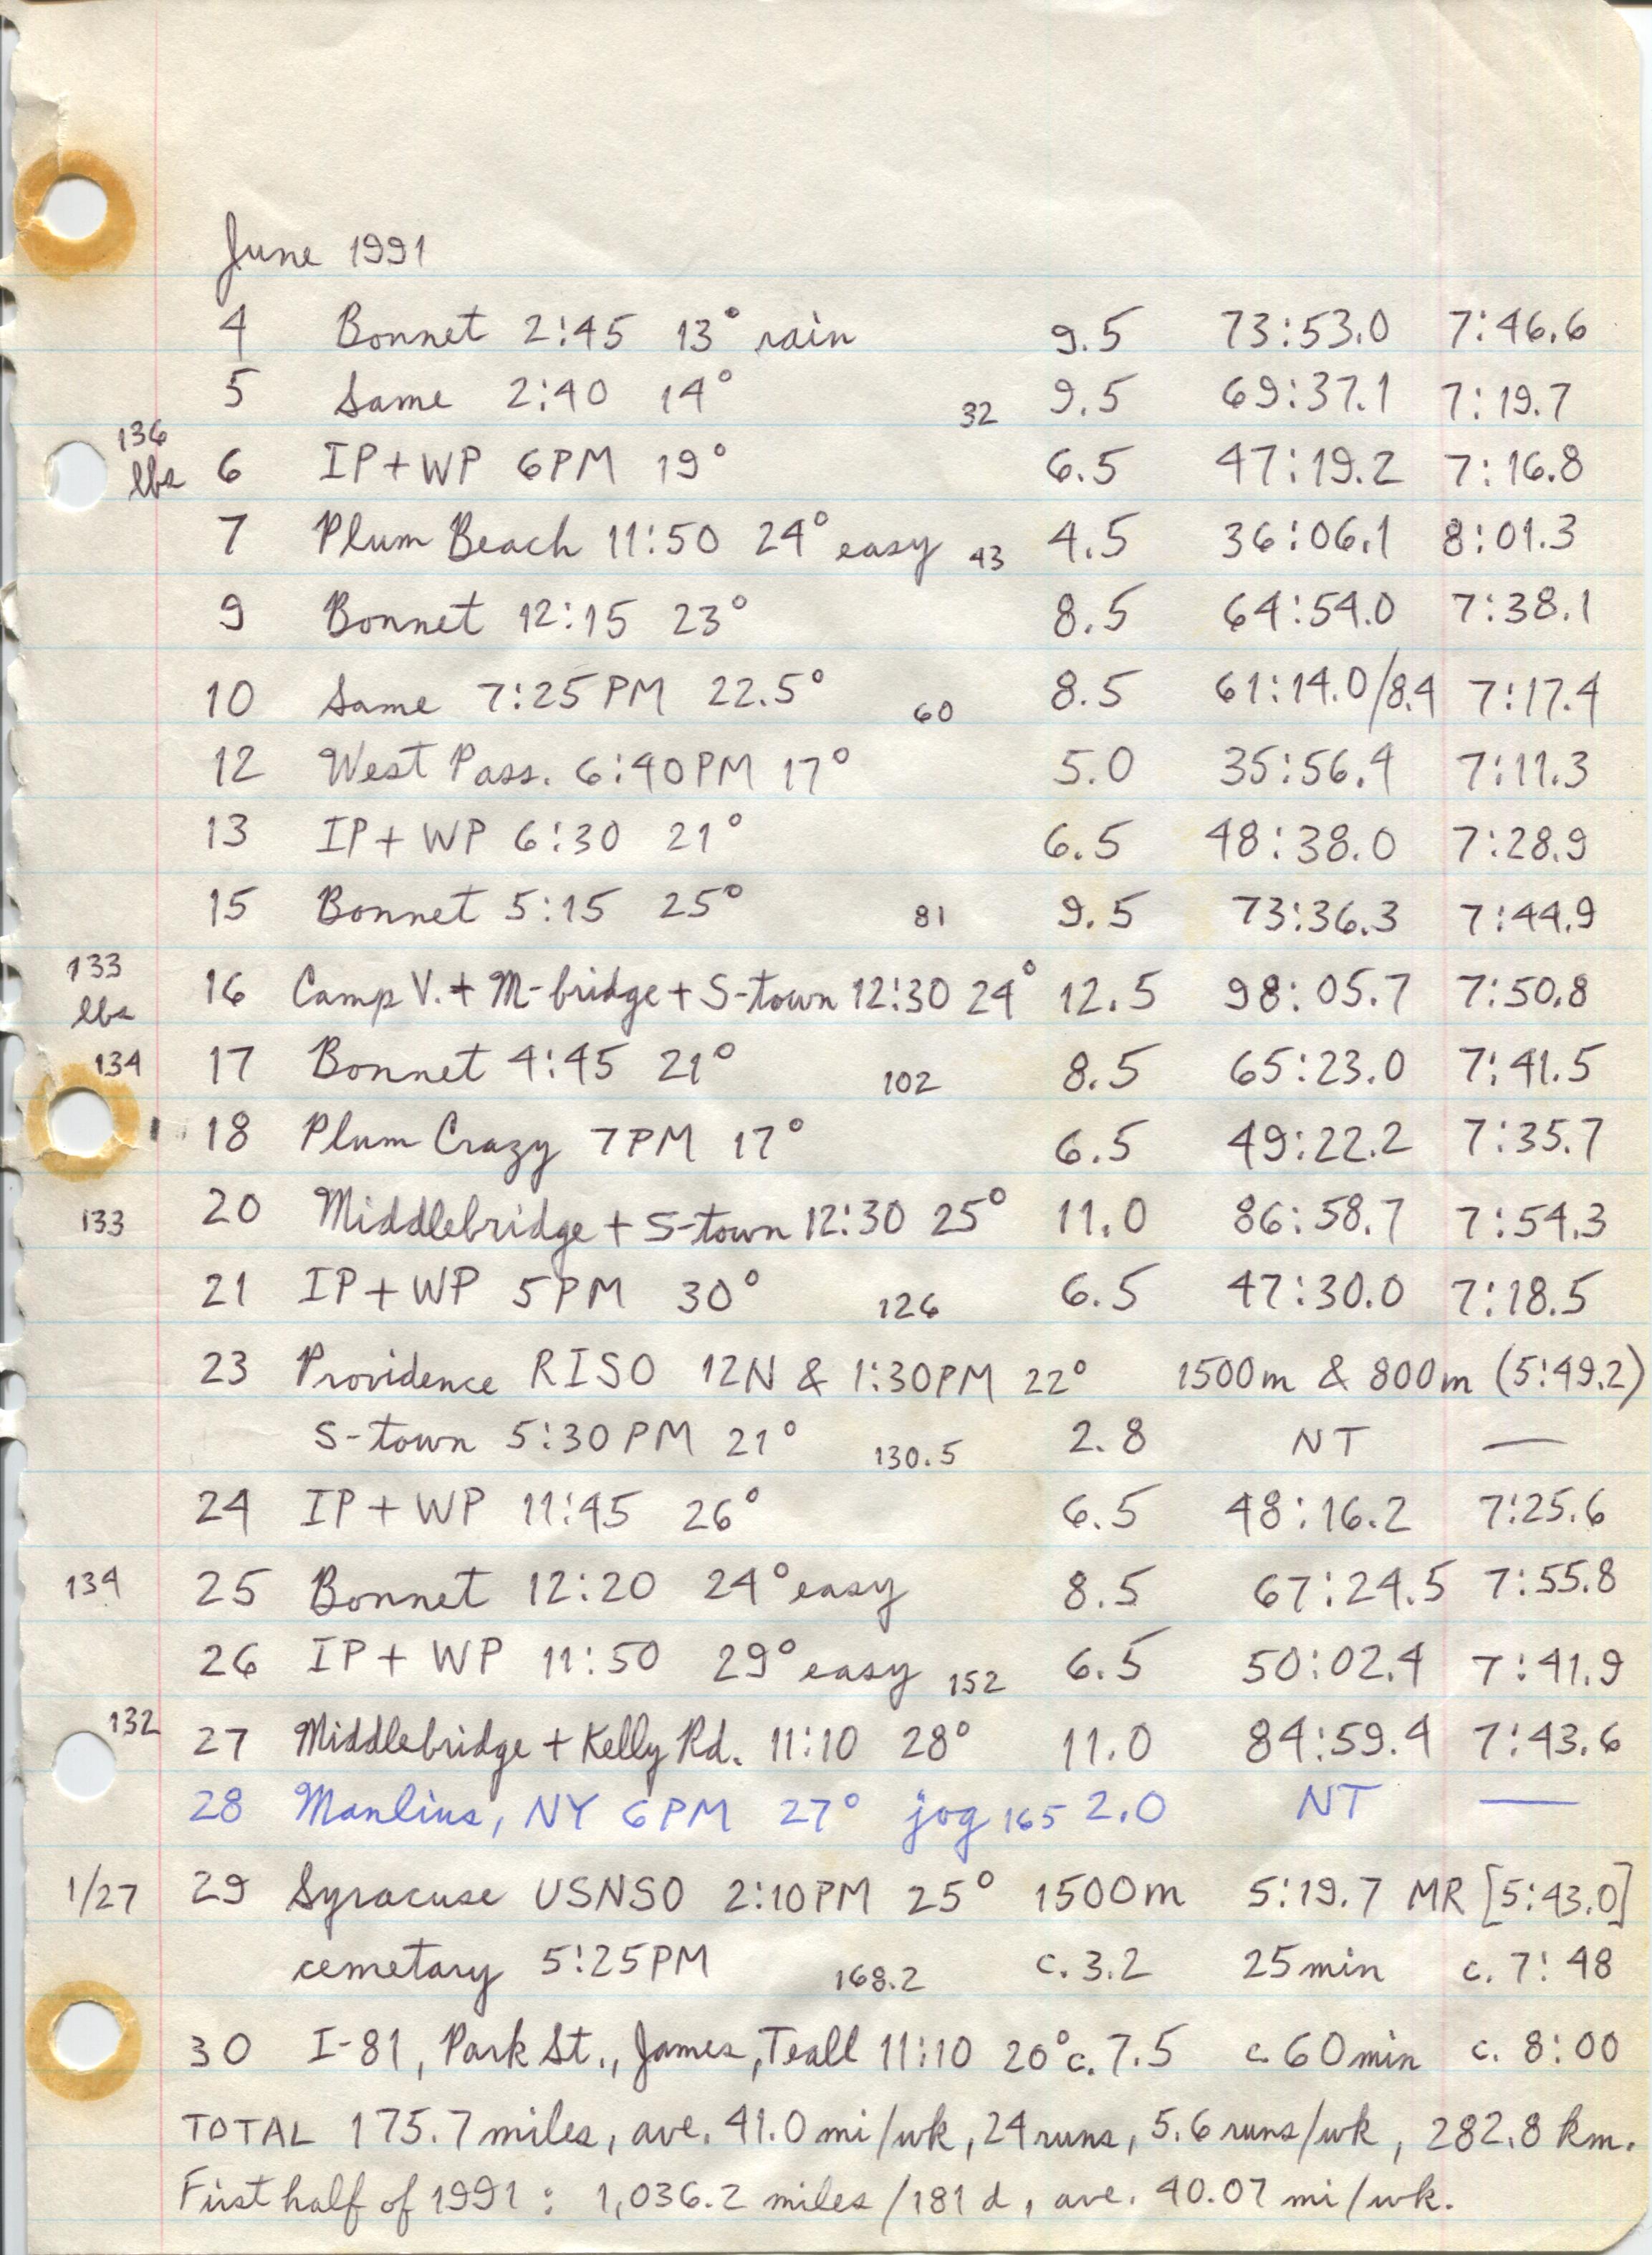 June 1991
4 Bonnet 2:45 13° rain 9.5 73:53.0 7:46.6
5 Same 2:40 14° 32 9.5 69:37.1 7:19.7
136 lbs 6 IP+WP 6PM 19° 6.5 47:19.2 7:16.8
7 Plum Beach 11:50 24° easy 43 4.5 36:06.1 8:01.3
9 Bonnet 12:15 23° 8.5 64:54.0 7:38.1
10 Same 7:25PM 22.5° 60 8.5 61:14.0/8.4 7:17.4
12 West Pass. 6:40PM 17° 5.0 35:56.4 7:11.3
13 IP+WP 6:30 21° 6.5 48:38.0 7:28.9
15 Bonnet 5:15 25° 81 9.5 73:36.3 7:44.9
133 lbs 16 Camp V. + M-bridge + S-town 12:30 24° 12.5 98:05.7 7:50.8
134 17 Bonnet 4:45 21° 102 8.5 65:23.0 7:41.5
18 Plum Crazy 7PM 17° 6.5 49:22.2 7:35.7
133 20 Middlebridge + S-town 12:30 25° 11.0 86:58.7 7:54.3
21 IP+WP 5PM 30° 126 6.5 47:30.0 7:18.5
23 Providence RISO 12N & 1:30PM 22° 1500m & 800m (5:49.2)
S-town 5:30PM 21° 130.5 2.8 NT —
24 IP+WP 11:45 26° 6.5 48:16.2 7:25.6
134 25 Bonnet 12:20 24° easy 8.5 67:24.5 7:55.8
26 IP+WP 11:50 29° easy 152 6.5 50:02.4 7:41.9
132 27 Middlebridge + Kelly Rd. 11:10 28° 11.0 84:59.4 7:43.6
28 Manlius, NY 6PM 27° jog 165 2.0 NT —
1/27 29 Syracuse USNSO 2:10PM 25° 1500m 5:19.7 MR [5:43.0]
cemetary 5:25PM 168.2 c. 3.2 25min c. 7:48
30 I-81, Park St., James, Teall 11:10 20° c. 7.5 c. 60min c. 8:00
TOTAL 175.7 miles, ave. 41.0 mi/wk, 24 runs, 5.6 runs/wk, 282.8 km.
First half of 1991: 1,036.2 miles/181 d, ave. 40.07 mi/wk.